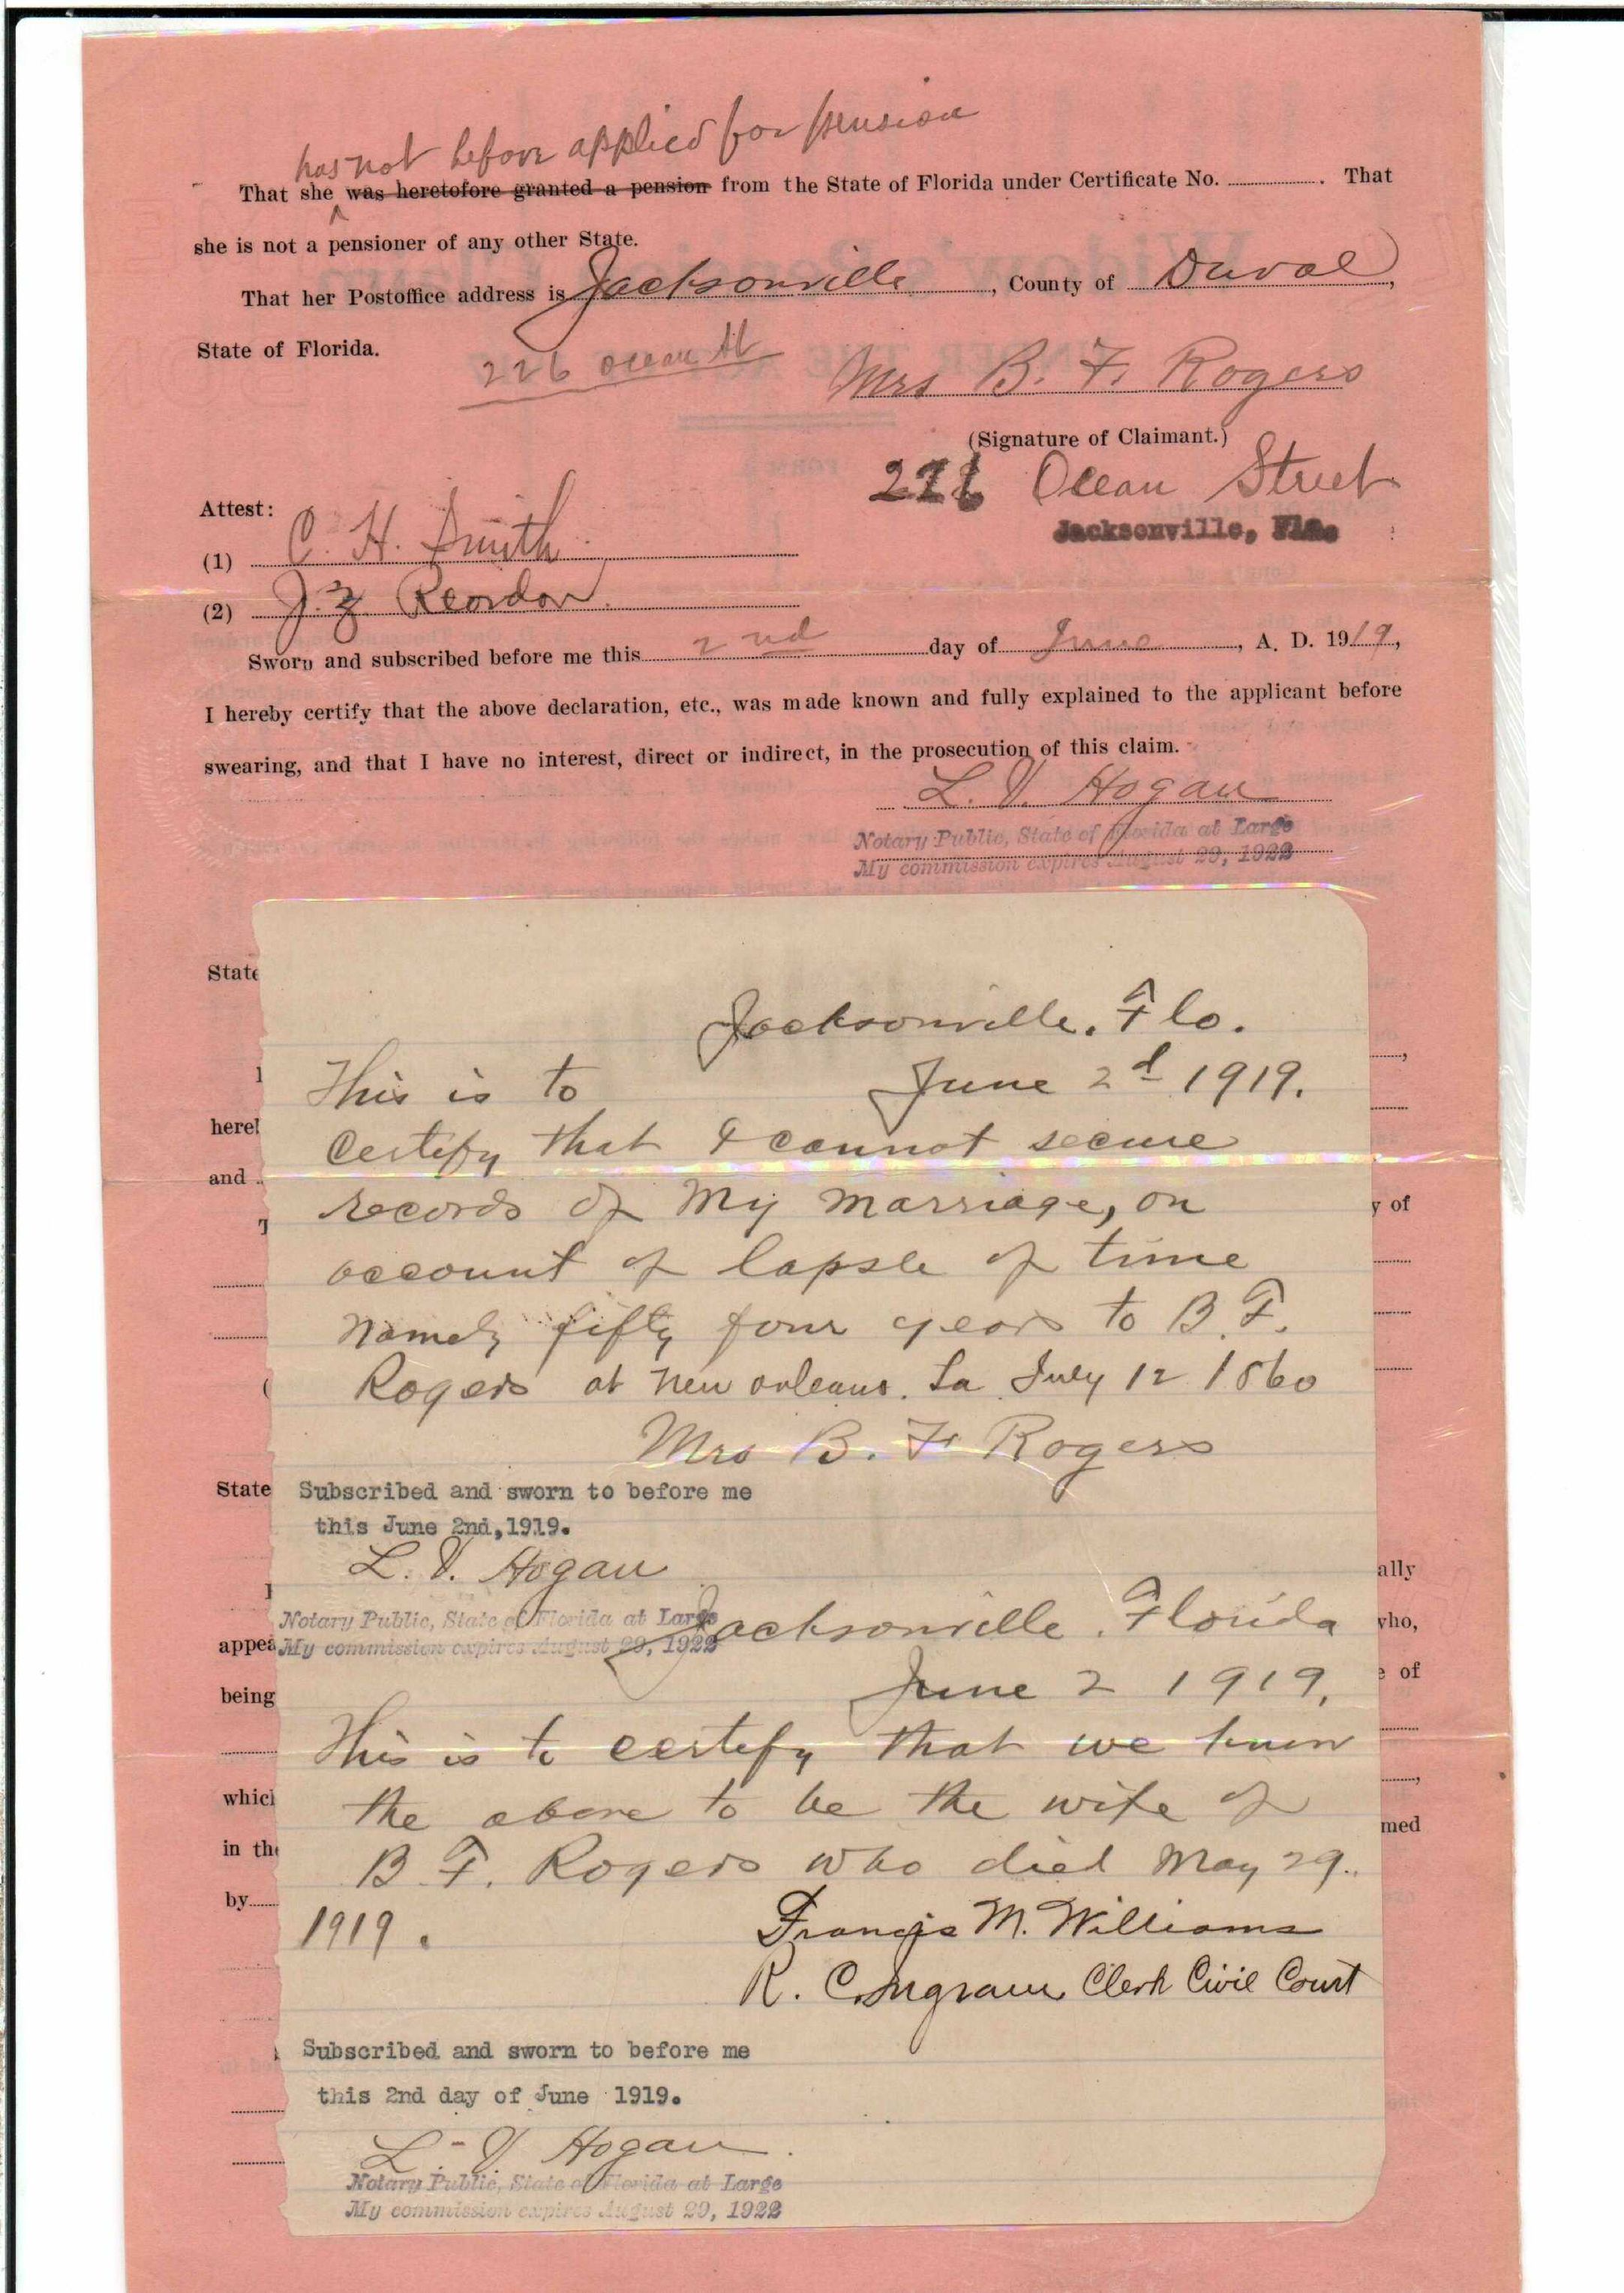 has not before applied for pension
That she was heretofore granted a pension from the State of Florida under Certificate No. .......... . That
she is not a pensioner of any other State.
That her Postoffice address is Jacksonville, County of Duval,
State of Florida.
226 Ocean St
Mrs B. F. Rogers
(Signature of Claimant.)
226 Ocean Street
Jacksonville, Fla.
Attest:
(1) C. H. Smith
(2) J. Z. Reardon
Sworn and subscribed before me this 2nd day of June, A. D. 1919,
I hereby certify that the above declaration, etc., was made known and fully explained to the applicant before
swearing, and that I have no interest, direct or indirect, in the prosecution of this claim.
L. V. Hogan
Notary Public, State of Florida at Large
My commission expires August 29, 1922
State
Jacksonville, Fla.
This is to June 2d 1919.
Certify that I cannot secure
records of my marriage, on
account of lapse of time
namely fifty four years to B. F.
Rogers at New Orleans. La July 12 1860
Mrs B. F Rogers
State Subscribed and sworn to before me
this June 2nd, 1919.
L. V. Hogan
Notary Public, State of Florida at Large
My commission expires August 29, 1922
Jacksonville, Florida
June 2 1919,
This is to certify that we know
the above to be the wife of
B. F. Rogers who died May 29.
1919.
Francis M. Williams
R. C. Ingram Clerk Civil Court
Subscribed and sworn to before me
this 2nd day of June 1919.
L. V. Hogan
Notary Public, State of Florida at Large
My commission expires August 29, 1922
and
y of
ally
who,
appea
of
being
which
in the
med
by